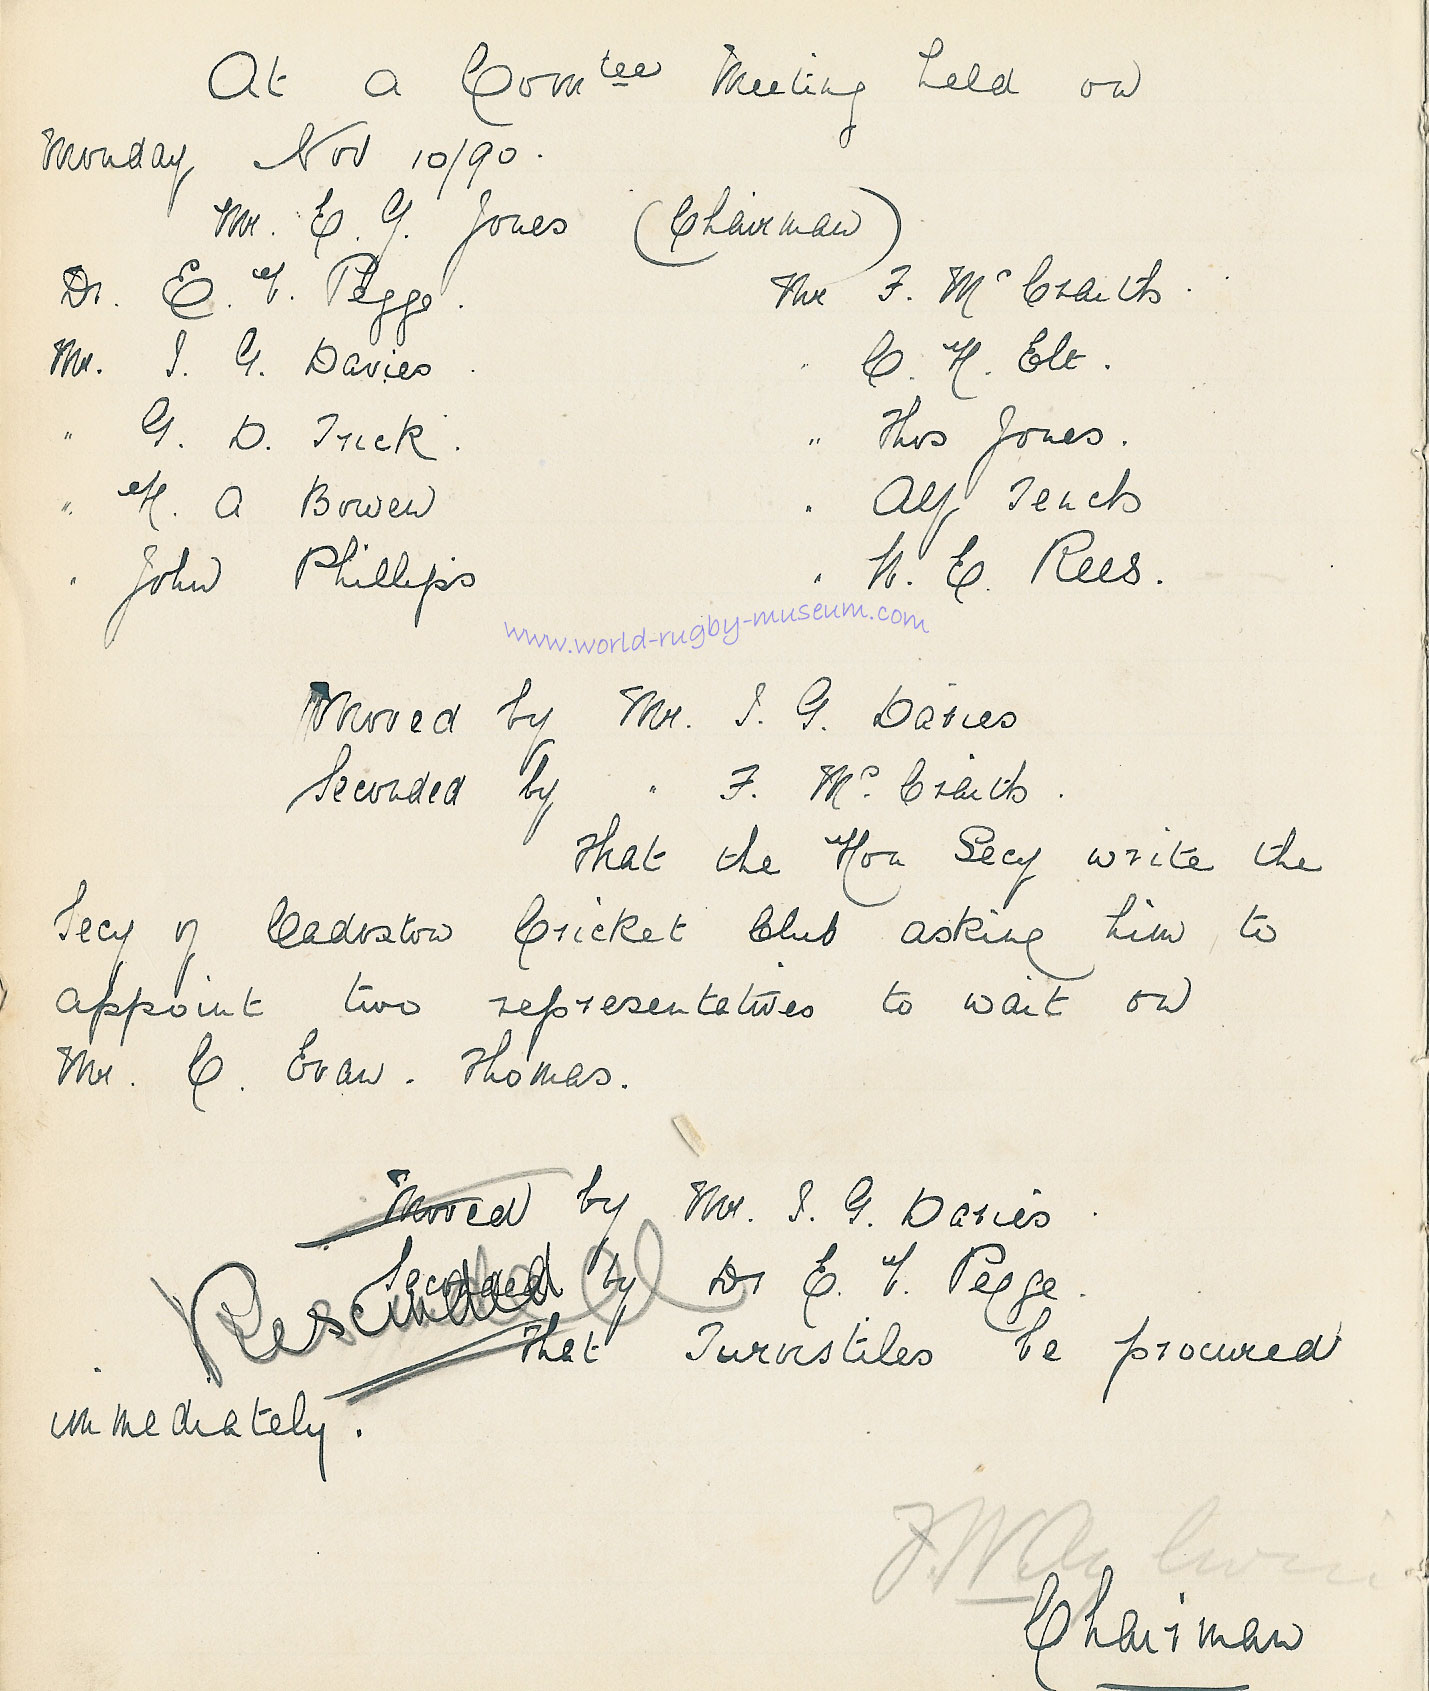 At a Com<sup>tee</sup> Meeting held on
Monday Nov 10/90.
Mr. E. G. Jones (Chairman)
Dr. E. V. Pegge. Mr F. Mc Craith.
Mr. I. G. Davies. " C. H. Elt.
" G. D. Trick. " Thos Jones.
" H. A Bowen " Alf Tench
" John Phillips " W. E. Rees.
www.world-rugby-museum.com
Moved by Mr. I. G. Davies
Seconded by " F. Mc. Craith.
That the Hon Secy write the
Secy of Cadoxton Cricket Club asking him to
appoint two representatives to wait on
Mr. C. Evan. Thomas.
Moved by Mr. I. G. Davies.
Seconded by Dr E. V. Pegge.
Rescinded
That Turnstiles be procured
immediately.
Chairman